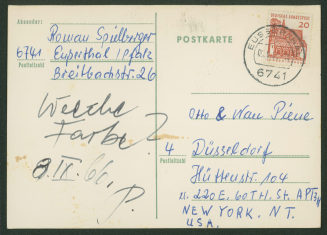 Absender:
Roman Spillberger
6741
Eußerthal / Pfalz
Postleitzahl
Breitbachstr. 26
Welche
Farbe?
3. IX. 66. P.
POSTKARTE
DEUTSCHE BUNDESPOST
20
6741
Otto & Nan Piene
4 Düsseldorf
Postleitzahl
Hüttenstr. 104
220 E. 60TH. ST. APT.
NEW YORK. N.Y.
U.S.A.